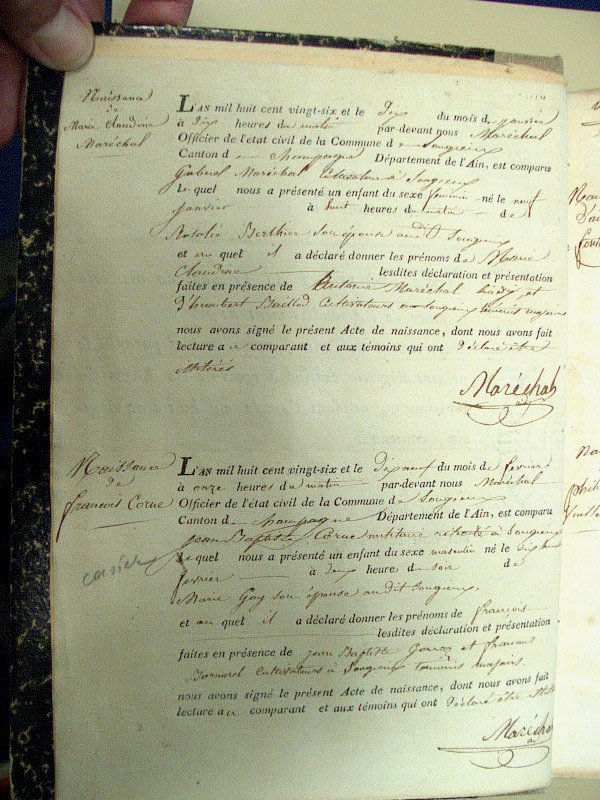 Naissance
de
Marie Claudine
Maréchal
L'AN mil huit cent vingt-six et le dix du mois de janvier
à dix heures du matin par-devant nous Maréchal
Officier de l'état civil de la Commune de Songieu
Canton de Champagne Département de l'Ain, est comparu
Gabriel Maréchal cultivateur à Songieu
lequel nous a présenté un enfant du sexe féminin né le neuf
janvier à huit heures du matin de
Natalie Berthier son épouse audit Songieu
et au quel il a déclaré donner les prénoms de Marie
Claudine lesdites déclaration et présentation
faites en présence de Antoine Maréchal et
D'humbert cultivateurs au Songieu temoins majeurs
nous avons signé le présent Acte de naissance, dont nous avons fait
lecture au comparant et aux témoins qui ont déclaré être
illitérés
Maréchal
Naissance
de
françois Corue
L'AN mil huit cent vingt-six et le dix neuf du mois de fevrier
à onze heures du matin par-devant nous Maréchal
Officier de l'état civil de la Commune de Songieu
Canton de Champagne Département de l'Ain, est comparu
jean Baptiste Corue militaire retraité à Songieu
lequel nous a présenté un enfant du sexe masculin né le dix huit
fevrier à deux heures du soir de
Marie Gay son épouse audit Songieu,
et au quel il a déclaré donner les prénoms de françois
lesdites déclaration et présentation
faites en présence de jean Baptiste et francois
cultivateurs à Songieu temoins majeurs
nous avons signé le présent Acte de naissance, dont nous avons fait
lecture au comparant et aux témoins qui ont déclaré être
Maréchal